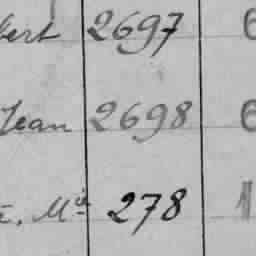 bert 2697 6
Jean 2698 6
e, Mie 278 11